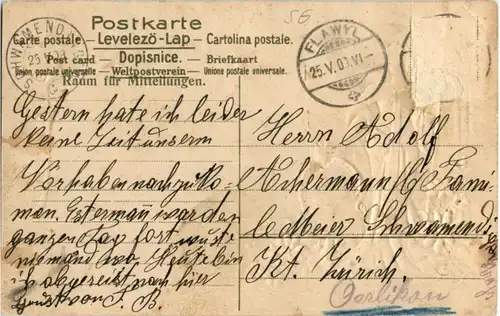 56
Postkarte
Carte postale – Levelező-Lap – Cartolina postale.
Post card – Dopisnice. – Briefkaart
Union postale universelle – Weltpostverein – Unione postale universale.
Raum für Mitteilungen.
SCHWAMEND
25
FLAWYL
25.V.03.VI
Gestern hate ich leider
keine Zeit unserm
Vorhaben nachzuko-
man. war den
ganzen Tag fort, wuste
niemand wo. Heute bin
ich abgereist von hier
Gruss von J. B.
Herrn Adolf
Achermann b/ Fami-
lie Meier Schwamend.
Kt. Zürich.
Oerlikon